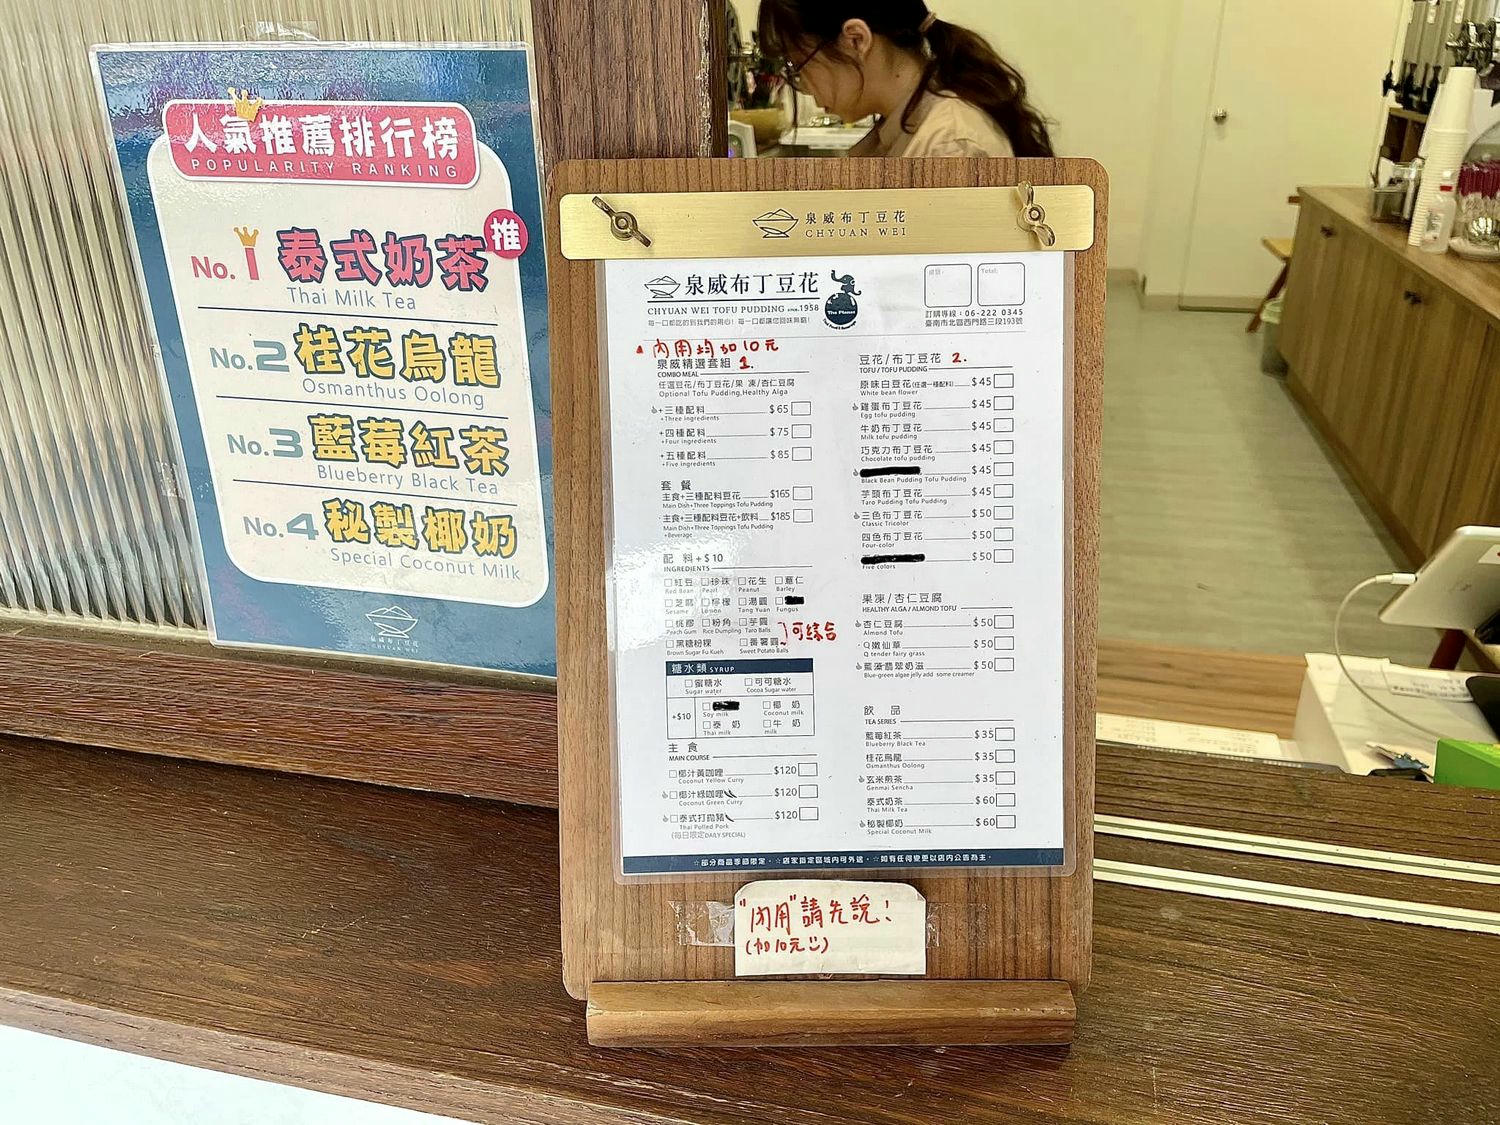 人氣推薦排行榜
POPULARITY RANKING
No.1 泰式奶茶 推
Thai Milk Tea
No.2 桂花烏龍
Osmanthus Oolong
No.3 藍莓紅茶
Blueberry Black Tea
No.4 秘製椰奶
Special Coconut Milk
泉威布丁豆花
CHYUAN WEI
泉威布丁豆花
CHYUAN WEI
泉威布丁豆花
CHYUAN WEI TOFU PUDDING since.1958
每一口都吃的到我們的用心！每一口都讓您回味無窮！
The Planet
Total:
訂購專線：06-222 0345
臺南市北區西門路三段193號
內用均加10元
泉威精選套組 1.
COMBO MEAL
任選豆花/布丁豆花/果凍/杏仁豆腐
Optional Tofu Pudding,Healthy Alga
+三種配料 $65
+Three ingredients
+四種配料 $75
+Four ingredients
+五種配料 $85
+Five ingredients
套餐
主食+三種配料豆花 $165
Main Dish+Three Toppings Tofu Pudding
主食+三種配料豆花+飲料 $185
Main Dish+Three Toppings Tofu Pudding
+Beverage
配料+$10
INGREDIENTS
紅豆 珍珠 花生 薏仁
Red Bean Pearl Peanut Barley
芝麻 檸檬 湯圓
Sesame Lemon Tang Yuan Fungus
桃膠 粉角 芋圓
Peach Gum Rice Dumpling Taro Balls
可綜合
黑糖粉粿 蕃薯圓
Brown Sugar Fu Kueh Sweet Potato Balls
糖水類 SYRUP
蜜糖水 可可糖水
Sugar water Cocoa Sugar water
+$10
椰奶
Soy milk Coconut milk
泰奶 牛奶
Thai milk milk
主食
MAIN COURSE
椰汁黃咖哩 $120
Coconut Yellow Curry
椰汁綠咖哩 $120
Coconut Green Curry
泰式打拋豬 $120
Thai Polled Pork
(每日限定DAILY SPECIAL)
豆花/布丁豆花 2.
TOFU / TOFU PUDDING
原味白豆花(任選一種配料) $45
White bean flower
雞蛋布丁豆花 $45
Egg tofu pudding
牛奶布丁豆花 $45
Milk tofu pudding
巧克力布丁豆花 $45
Chocolate tofu pudding
$45
Black Bean Pudding Tofu Pudding
芋頭布丁豆花 $45
Taro Pudding Tofu Pudding
三色布丁豆花 $50
Classic Tricolor
四色布丁豆花 $50
Four-color
$50
Five colors
果凍/杏仁豆腐
HEALTHY ALGA / ALMOND TOFU
杏仁豆腐 $50
Almond Tofu
Q嫩仙草 $50
Q tender fairy grass
藍藻翡翠奶滋 $50
Blue-green algae jelly add some creamer
飲品
TEA SERIES
藍莓紅茶 $35
Blueberry Black Tea
桂花烏龍 $35
Osmanthus Oolong
玄米煎茶 $35
Genmai Sencha
泰式奶茶 $60
Thai Milk Tea
秘製椰奶 $60
Special Coconut Milk
☆部分商品季節限定。☆店家指定區域內可外送。☆如有任何變更以店內公告為主。
"內用"請先說！
(加10元)